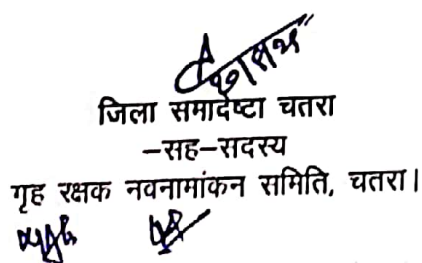 जिला समादेष्टा चतरा
–सह–सदस्य
गृह रक्षक नवनामांकन समिति, चतरा।